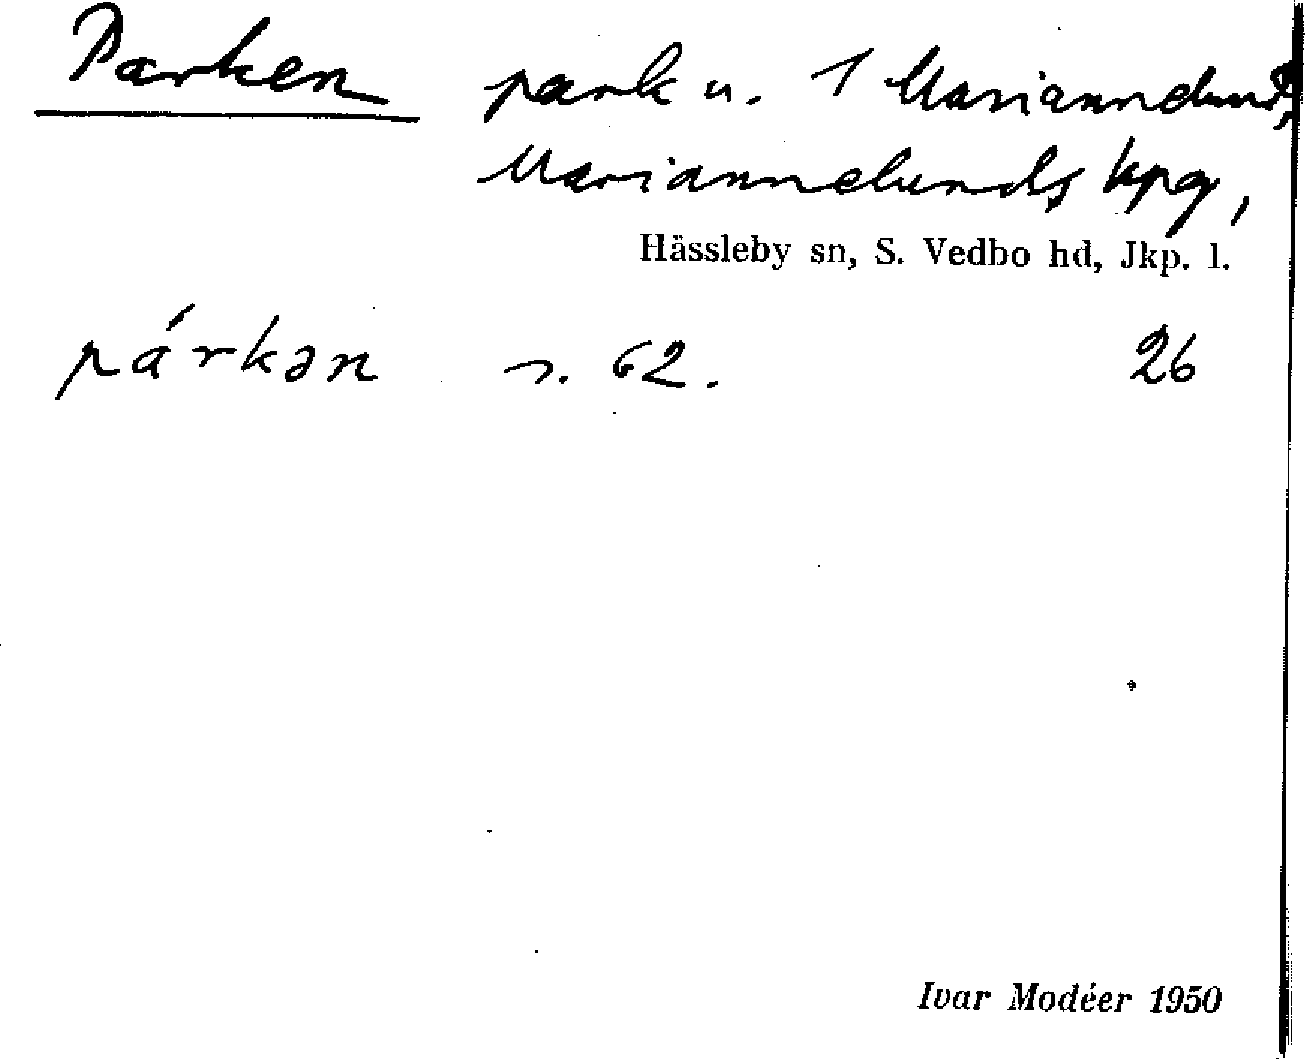 Parken park u. 1 Mariannelund,
Mariannelunds kpg,
Hässleby sn, S. Vedbo hd, Jkp. l.
párkən s. 62. 26
Ivar Modéer 1950